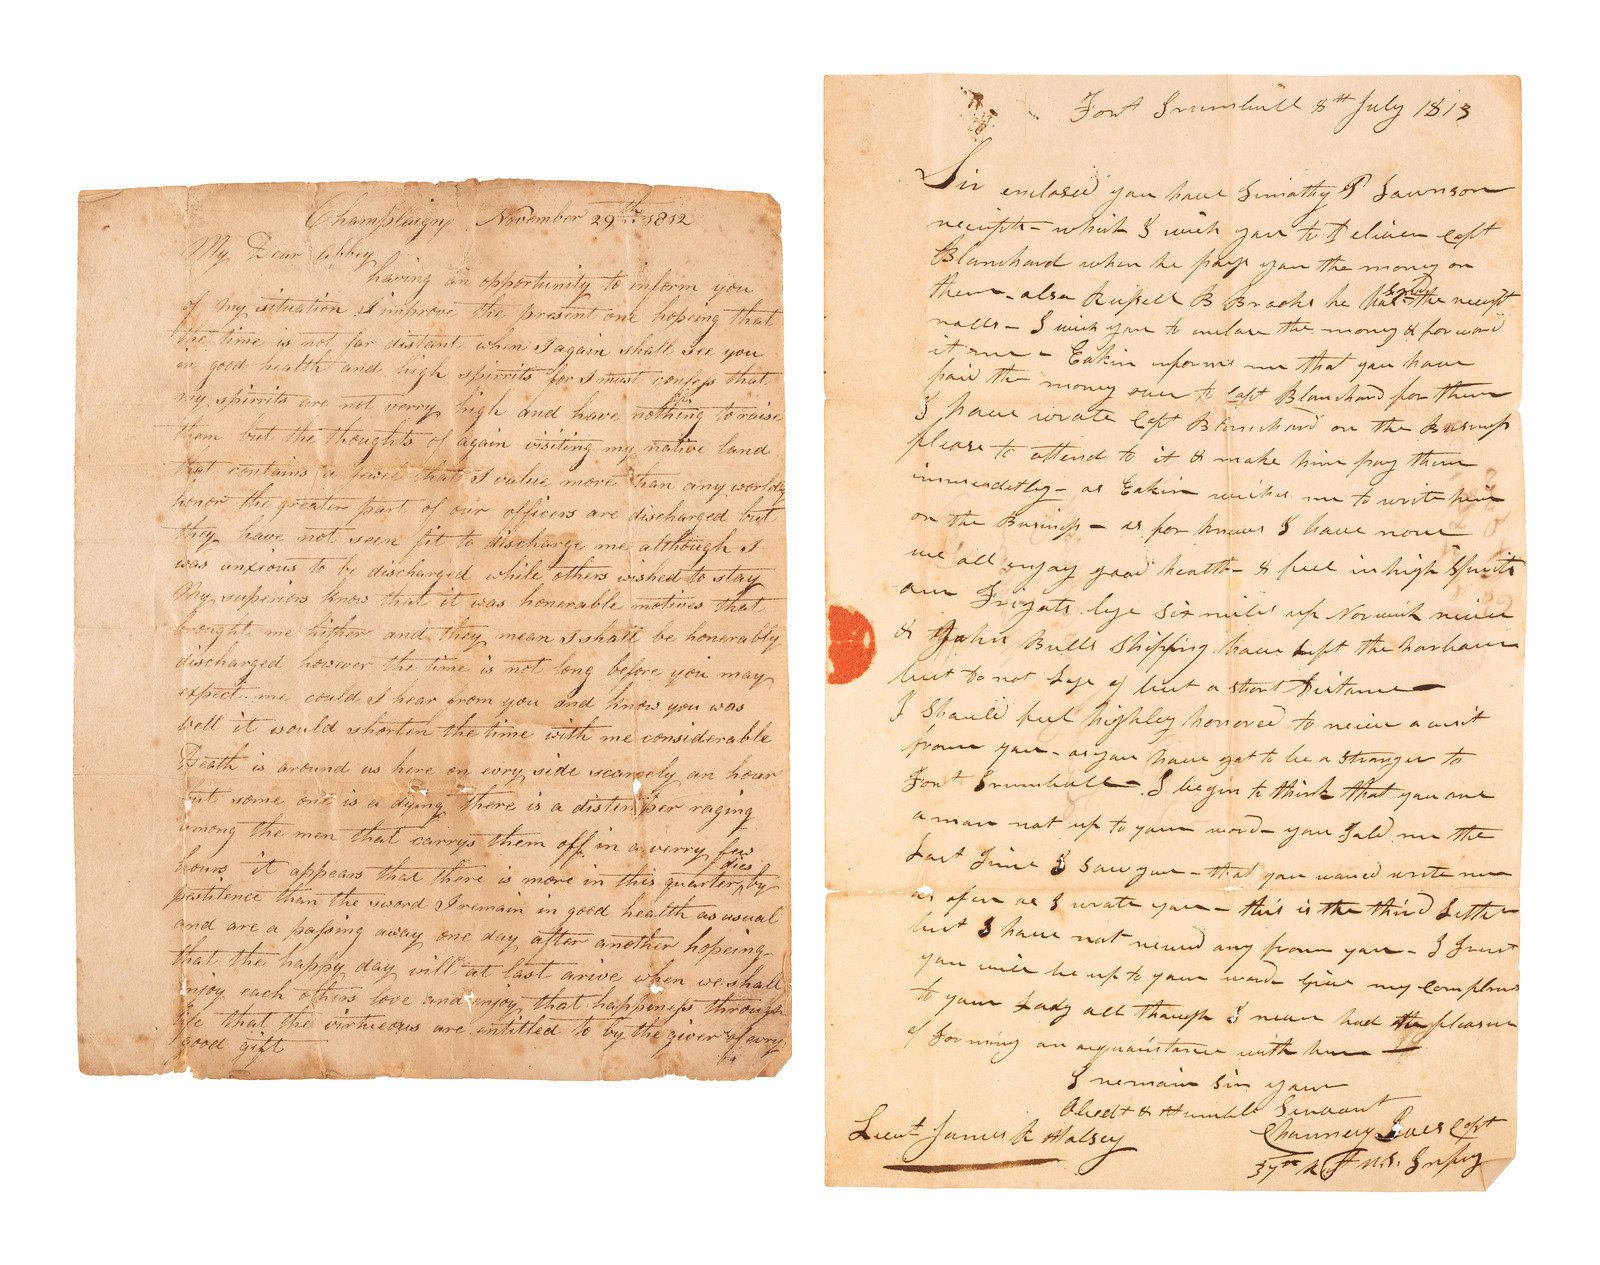 Champlaigny November 29th 1812
My Dear Abbey
having an opportunity to inform you
of my situation I improve the present one hopeing that
the time is not far distant when I again shall see you
in good health and high spirrits for I must confess that
my spirrits are not verry high and have nothing to raise
them but the thoughts of again visiting my native land
that contains a fewe that I value more than any worldy
honor the greater part of our officers are discharged but
they have not seen fit to discharge me although I
was anxious to be discharged while others wished to stay
My superiors know that it was honerable motives that
brought me hither and they mean I shall be honerably
discharged however the time is not long before you may
expect me could I hear from you and know you was
well it would shorten the time with me considerable
Death is around us here on evry side scarcely an hour
but some one is a dying there is a distemper raging
among the men that carrys them off in a verry few
hours it appears that there is more in this quarter dies by
pestilence than the sword I remain in good health as usual
and are a passing away one day after another hopeing
that the happy day will at last arive when we shall
enjoy each others love and enjoy that happiness through
life that the virtueous are entitled to by the giver of evry
good gift
Fort Trumbull 8th July 1813
Sir enclosed you have Timothy P
receipts - which I wish you to Deliver Capt
Blanchard when he pays you the money on
them - also Russell B Brooks he has the receipt
rolls - I wish you to enclose the money & forward
it me - Eakin informs me that you have
paid the money over to Capt Blanchard for them
I have wrote Capt Blanchard on the Business
please to attend to it & make him pay them
immediately - as Eakin wishes me to write him
on the Business - as for knews I have none
we all enjoy good health - & feel in high Spirits
our Frigats lye six miles up Norwich river
& John Bulls shipping have left the harbour
but do not lye of but a short Distance
I should feel highley honored to receive a visit
from you - as you have got to be a stranger to
Fort Trumbull - I begin to think that you are
a man not up to your word - you told me the
last Time I saw you - that you would write me
as often as I wrote you - this is the third Letter
but I have not received any from you - I trust
you will be up to your word Give my Complements
to your Lady all though I never had the pleasure
of Forming an acquaintance with her
I remain Sir your
Obedt & Humble Servant
Chauncey Ives Capt
37th Regt U.S. Infty
Lieut James K Halsey